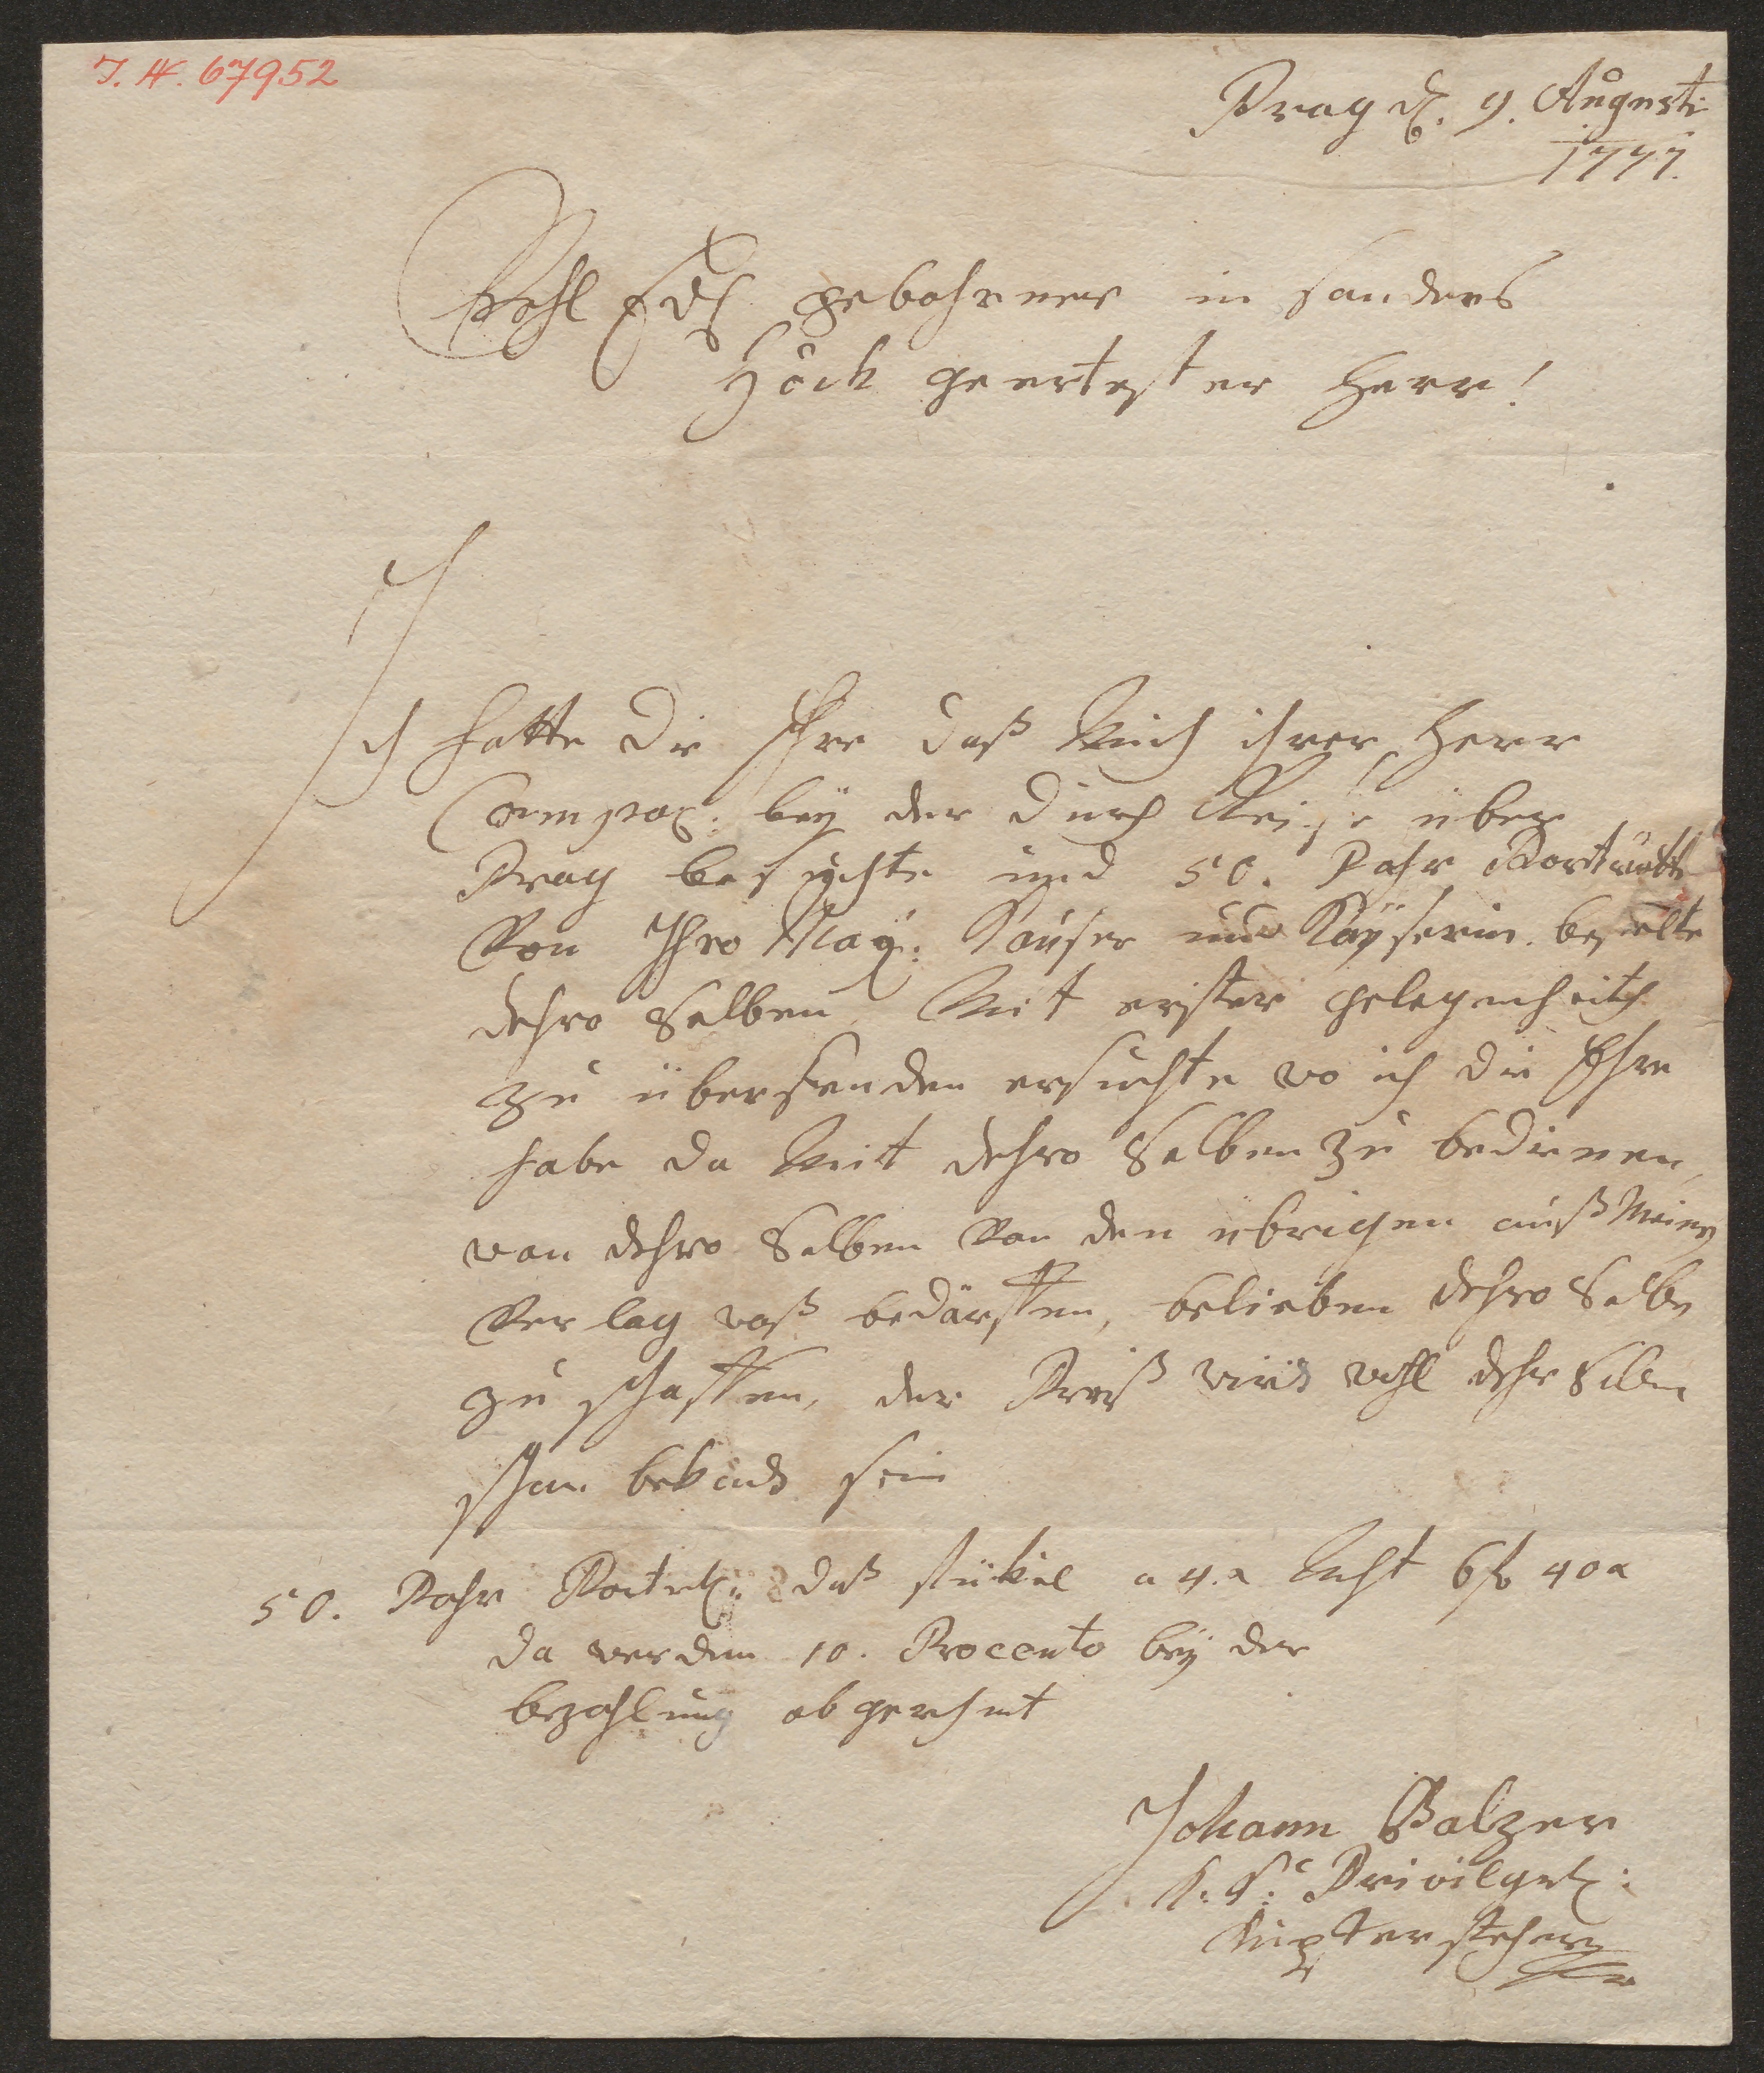 J. N. 67952
Prag d. 9. Augusti
1777.
Wohl Edl gebohrner in sonders
Höch geertester Herr!
Ich hatte die Ehre daß mich ihrer Herr
Compag: bey der durch Reise über
Prag besuchte und 50. Pahr Porträtt
von Ihro May: Kaÿser und Kaÿserin bestelte
dehro Selben mit erster gelegenheith
zu übersenden ersuchte wo ich die Ehre
habe da mit dehro Selben zu bedienen,
wan dehro Selben von den übrigen auß meinen
Verlag waß bedärffen, belieben dehro Selbe
zu schaffen, der Preiß wird wohl dehro Selben
schon bekand sein
50. Pahr Portret: daß stükel a 4 x Macht 6 f 40 x
da werden 10. Procento beÿ der
bezahlung ab gerechnet
Johann Balzer
K. K. Privilget:
Kupferstecher